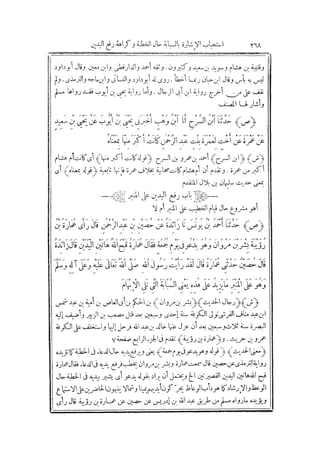 ٢٦٨ استحباب الإشارة بالسبابة حال الخطبة وكراهة رفع اليدين
وقتيبة بن هشام وسويد بن سعيد وكثيرون. وثقه أحمد والدارقطني وابن معين وقال أبوداود
ليس به بأس وقال ابن حبان ربما أخطأ. روى له أبوداود والنسائى وابن ماجه والترمذى. ولم
نقف على من أخرج رواية ابن أبى الرجال. وأما رواية يحيى بن أيوب فقد رواها مسلم
وأشار لها المصنف
﴿ص﴾ حَدَّثَنَا ابْنُ السَّرْحِ أَنَا ابْنُ وَهْبٍ أَخْبَرَنِى يَحْيَى بْنُ أَيُّوبَ عَنْ يَحْيَى بْنِ سَعِيدٍ
عَنْ عَمْرَةَ عَنْ أُخْتٍ لِعَمْرَةَ بِنْتِ عَبْدِ الرَّحْمٰنِ كَانَتْ أَكْبَرَ مِنْهَا بِمَعْنَاهُ
﴿ش﴾ ﴿ابن السرح﴾ أحمد بن عمرو بن السرح ﴿قوله كانت أكبر منها﴾ أى كانت أم هشام
أكبر من عمرة. وتقدم أن أم هشام كانت صحابية بخلاف عمرة فإنها تابعية ﴿قوله بمعناه﴾ أى
بمعنى حديث سليمان بن بلال المتقدم
باب رفع اليدين على المنبر
أهو مشروع حال قيام الخطيب على المنبر أم لا
﴿ص﴾ حَدَّثَنَا أَحْمَدُ بْنُ يُونُسَ نَا زَائِدَةُ عَنْ حُصَيْنِ بْنِ عَبْدِ الرَّحْمٰنِ قَالَ رَأَى عُمَارَةُ بْنُ
رُؤَيْبَةَ بِشْرَ بْنَ مَرْوَانَ وَهُوَ يَدْعُو فِى يَوْمِ جُمُعَةٍ فَقَالَ عُمَارَةُ قَبَّحَ اللهُ هَاتَيْنِ الْيَدَيْنِ قَالَ زَائِدَةُ
قَالَ حُصَيْنٌ حَدَّثَنِى عُمَارَةُ قَالَ لَقَدْ رَأَيْتُ رَسُولَ اللهِ صَلَّى اللهُ تَعَالَى عَلَيْهِ وَعَلَى آلِهِ وَسَلَّمَ
وَهُوَ عَلَى الْمِنْبَرِ مَا يَزِيدُ عَلَى هٰذِهِ يَعْنِى السَّبَّابَةَ الَّتِى تَلِى الْإِبْهَامَ
﴿ش﴾ ﴿رجال الحديث﴾ ﴿بشر بن مروان﴾ بن الحكم بن أبى العاص بن أمية بن عبد شمس
ابن عبد مناف القرشى تولى الكوفة سنة إحدى وسبعين بعد قتل مصعب بن الزبير وأضيف إليه
البصرة سنة ثلاث وسبعين بعد أن عزل عنها خالد بن عبد الله فرحل إليها واستخلف على الكوفة
عمرو بن حريث. و﴿عمارة بن رؤيبة﴾ تقدم فى الجزء الرابع صفحة ٧
﴿معنى الحديث﴾ ﴿قوله وهو يدعو فى يوم جمعة﴾ يعنى ويرفع يديه حال الدعاء فى الخطبة كما تؤيده
رواية الترمذى عن حصين قال سمعت عمارة وبشر بن مروان يخطب فرفع يديه فى الدعاء فقال عمارة
قبح الله هاتين اليدين القصيرتين الخ ويحتمل أن يراد بقوله يدعو أى يشير بيديه فى الخطبة حال
الوعظ والإرشاد كما هو دأب الوعاظ يحركون أيديهم يمينا وشمالا ينبهون الحاضرين على الاستماع
ويؤيده ما رواه مسلم من طريق عبد الله بن إدريس عن حصين عن عمارة بن رؤيبة قال رأى